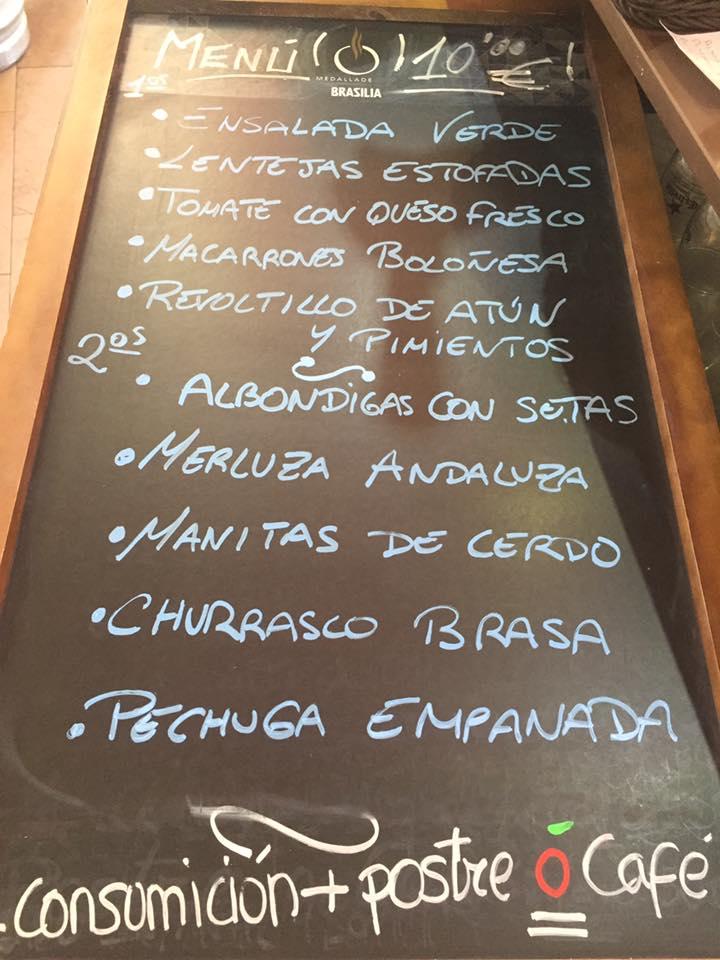 MENÚ 10'00 € !
MEDALLADE
BRASILIA
1os
• ENSALADA VERDE
• LENTEJAS ESTOFADAS
• TOMATE CON QUESO FRESCO
• MACARRONES BOLOÑESA
• REVOLTILLO DE ATÚN
Y PIMIENTOS
2os
• ALBONDIGAS CON SETAS
• MERLUZA ANDALUZA
• MANITAS DE CERDO
• CHURRASCO BRASA
• PECHUGA EMPANADA
consumición + postre ó Café